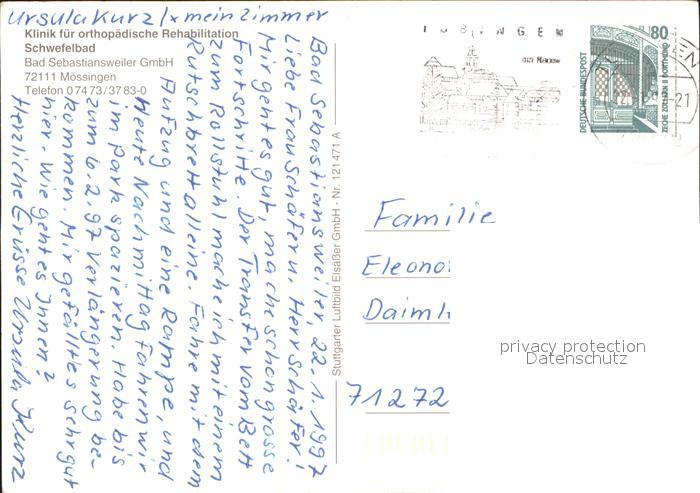 Ursula Kurz / x mein Zimmer
Klinik für orthopädische Rehabilitation
Schwefelbad
Bad Sebastiansweiler GmbH
72111 Mössingen
Telefon 0 74 73 / 37 83-0
Bad Sebastiansweiler, 22.1.1997
Liebe Frau Schäfern, Herr Schäfer!
Mir geht es gut, mache schon grosse
Fortschritte. Der Transfer vom Bett
zum Rollstuhl mache ich mit einem
Rutschbrett alleine. Fahre mit dem
Aufzug und eine Rampe, und
Heute Nachmittag fahren wir
im Park spazieren. Habe bis
zum 6.2.97 Verlängerung be-
kommen. Mir gefällt es sehr gut
hier. Wie geht es Ihnen?
Herzliche Grüsse Ursula Kurz
Stuttgarter Luftbild Elsäßer GmbH - Nr. 121471 A
TÜBINGEN
am Neckar
80
DEUTSCHE BUNDESPOST
ZECHE ZOLLERN II DORTMUND
Familie
Eleono
Daiml
71272
privacy protection
Datenschutz